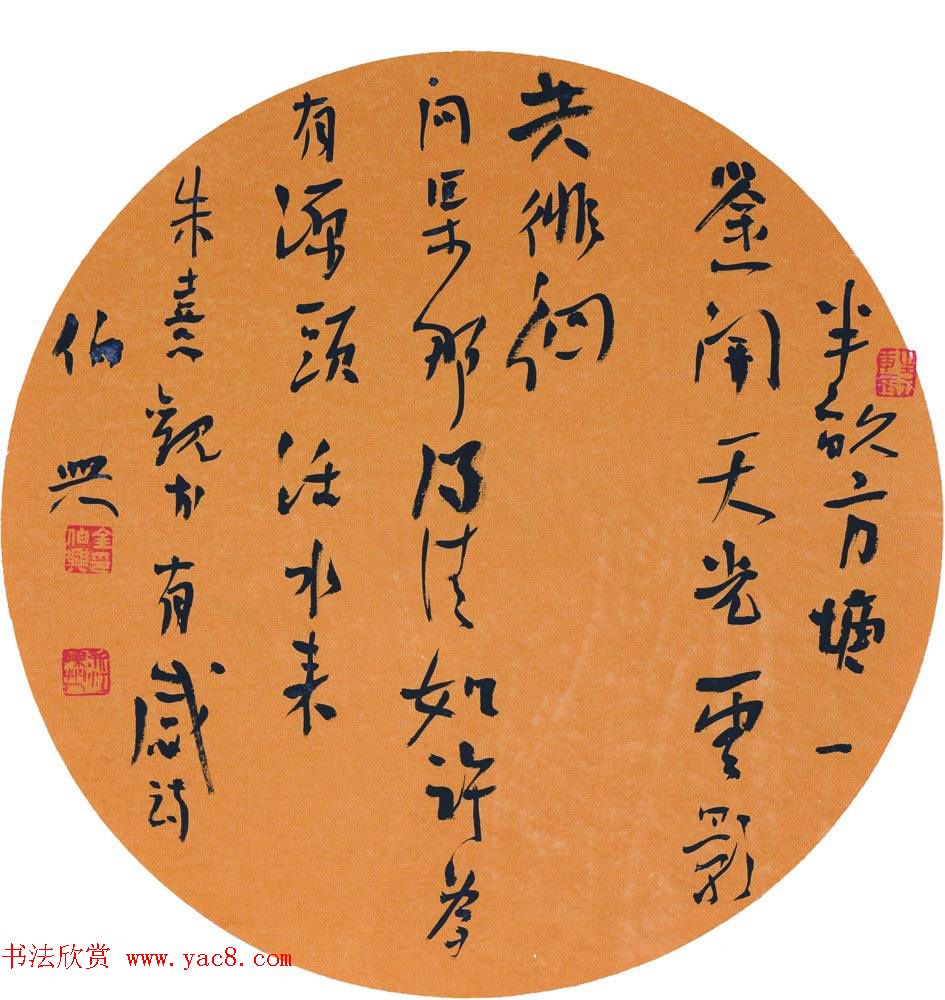 半畝方塘一
鑒開天光雲影
共徘徊
问渠那得清如许為
有源頭活水来
朱熹觀书有感詩
伯興
书法欣赏 www.yac8.com